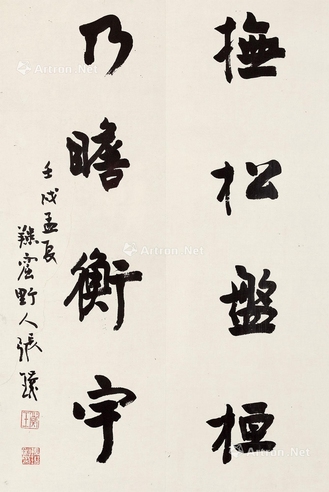 撫松盤桓
乃瞻衡宇
壬戌孟
窟野人張
Artron.Net
Artron.Net
Artron.Net
Artron.Net